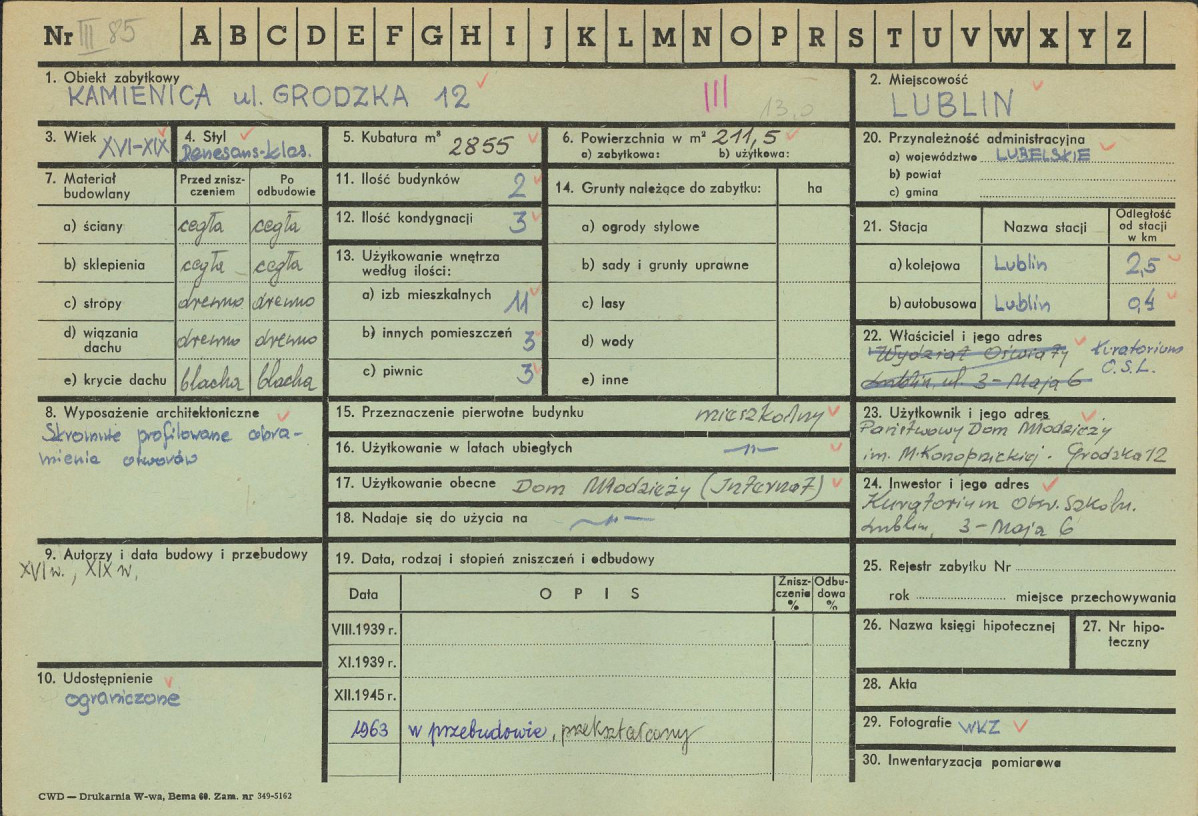 Nr III 85 A B C D E F G H I J K L M N O P R S T U V W X Y Z
1. Obiekt zabytkowy
KAMIENICA ul. GRODZKA 12
III 13,0
2. Miejscowość
LUBLIN
3. Wiek XVI-XIX
4. Styl
Renesans-klas.
5. Kubatura m³ 2855
6. Powierzchnia w m² 211,5
a) zabytkowa: b) użytkowa:
7. Materiał budowlany
Przed znisz-
czeniem
Po
odbudowie
a) ściany cegła cegła
b) sklepienia cegła cegła
c) stropy drewno drewno
d) wiązania
dachu drewno drewno
e) krycie dachu blacha blacha
8. Wyposażenie architektoniczne
Skromnie profilowane obra-
mienia otworów
9. Autorzy i data budowy i przebudowy
XVI w., XIX w,
10. Udostępnienie
ograniczone
11. Ilość budynków 2
12. Ilość kondygnacji 3
13. Użytkowanie wnętrza
według ilości:
a) izb mieszkalnych 11
b) innych pomieszczeń 3
c) piwnic 3
14. Grunty należące do zabytku: ha
a) ogrody stylowe
b) sady i grunty uprawne
c) lasy
d) wody
e) inne
15. Przeznaczenie pierwotne budynku mieszkalny
16. Użytkowanie w latach ubiegłych -"-
17. Użytkowanie obecne Dom Młodzieży (Internat)
18. Nadaje się do użycia na -"-
19. Data, rodzaj i stopień zniszczeń i odbudowy
Data OPIS Znisz-
czenia
%
Odbu-
dowa
%
VIII.1939 r.
XI.1939 r.
XII.1945 r.
1963 w przebudowie, przekształcany
20. Przynależność administracyjna
a) województwo LUBELSKIE
b) powiat
c) gmina
21. Stacja Nazwa stacji Odległość
od stacji
w km
a) kolejowa Lublin 2,5
b) autobusowa Lublin 0,4
22. Właściciel i jego adres
Wydział Oświaty Kuratorium
Lublin, ul. 3-Maja 6 O.S.L.
23. Użytkownik i jego adres
Państwowy Dom Młodzieży
im. M. Konopnickiej. Grodzka 12
24. Inwestor i jego adres
Kuratorium Okr. Szkoln.
Lublin, 3-Maja 6
25. Rejestr zabytku Nr
rok miejsce przechowywania
26. Nazwa księgi hipotecznej
27. Nr hipo-
teczny
28. Akta
29. Fotografie WKZ
30. Inwentaryzacja pomiarowa
CWD — Drukarnia W-wa, Bema 60. Zam. nr 349-5162